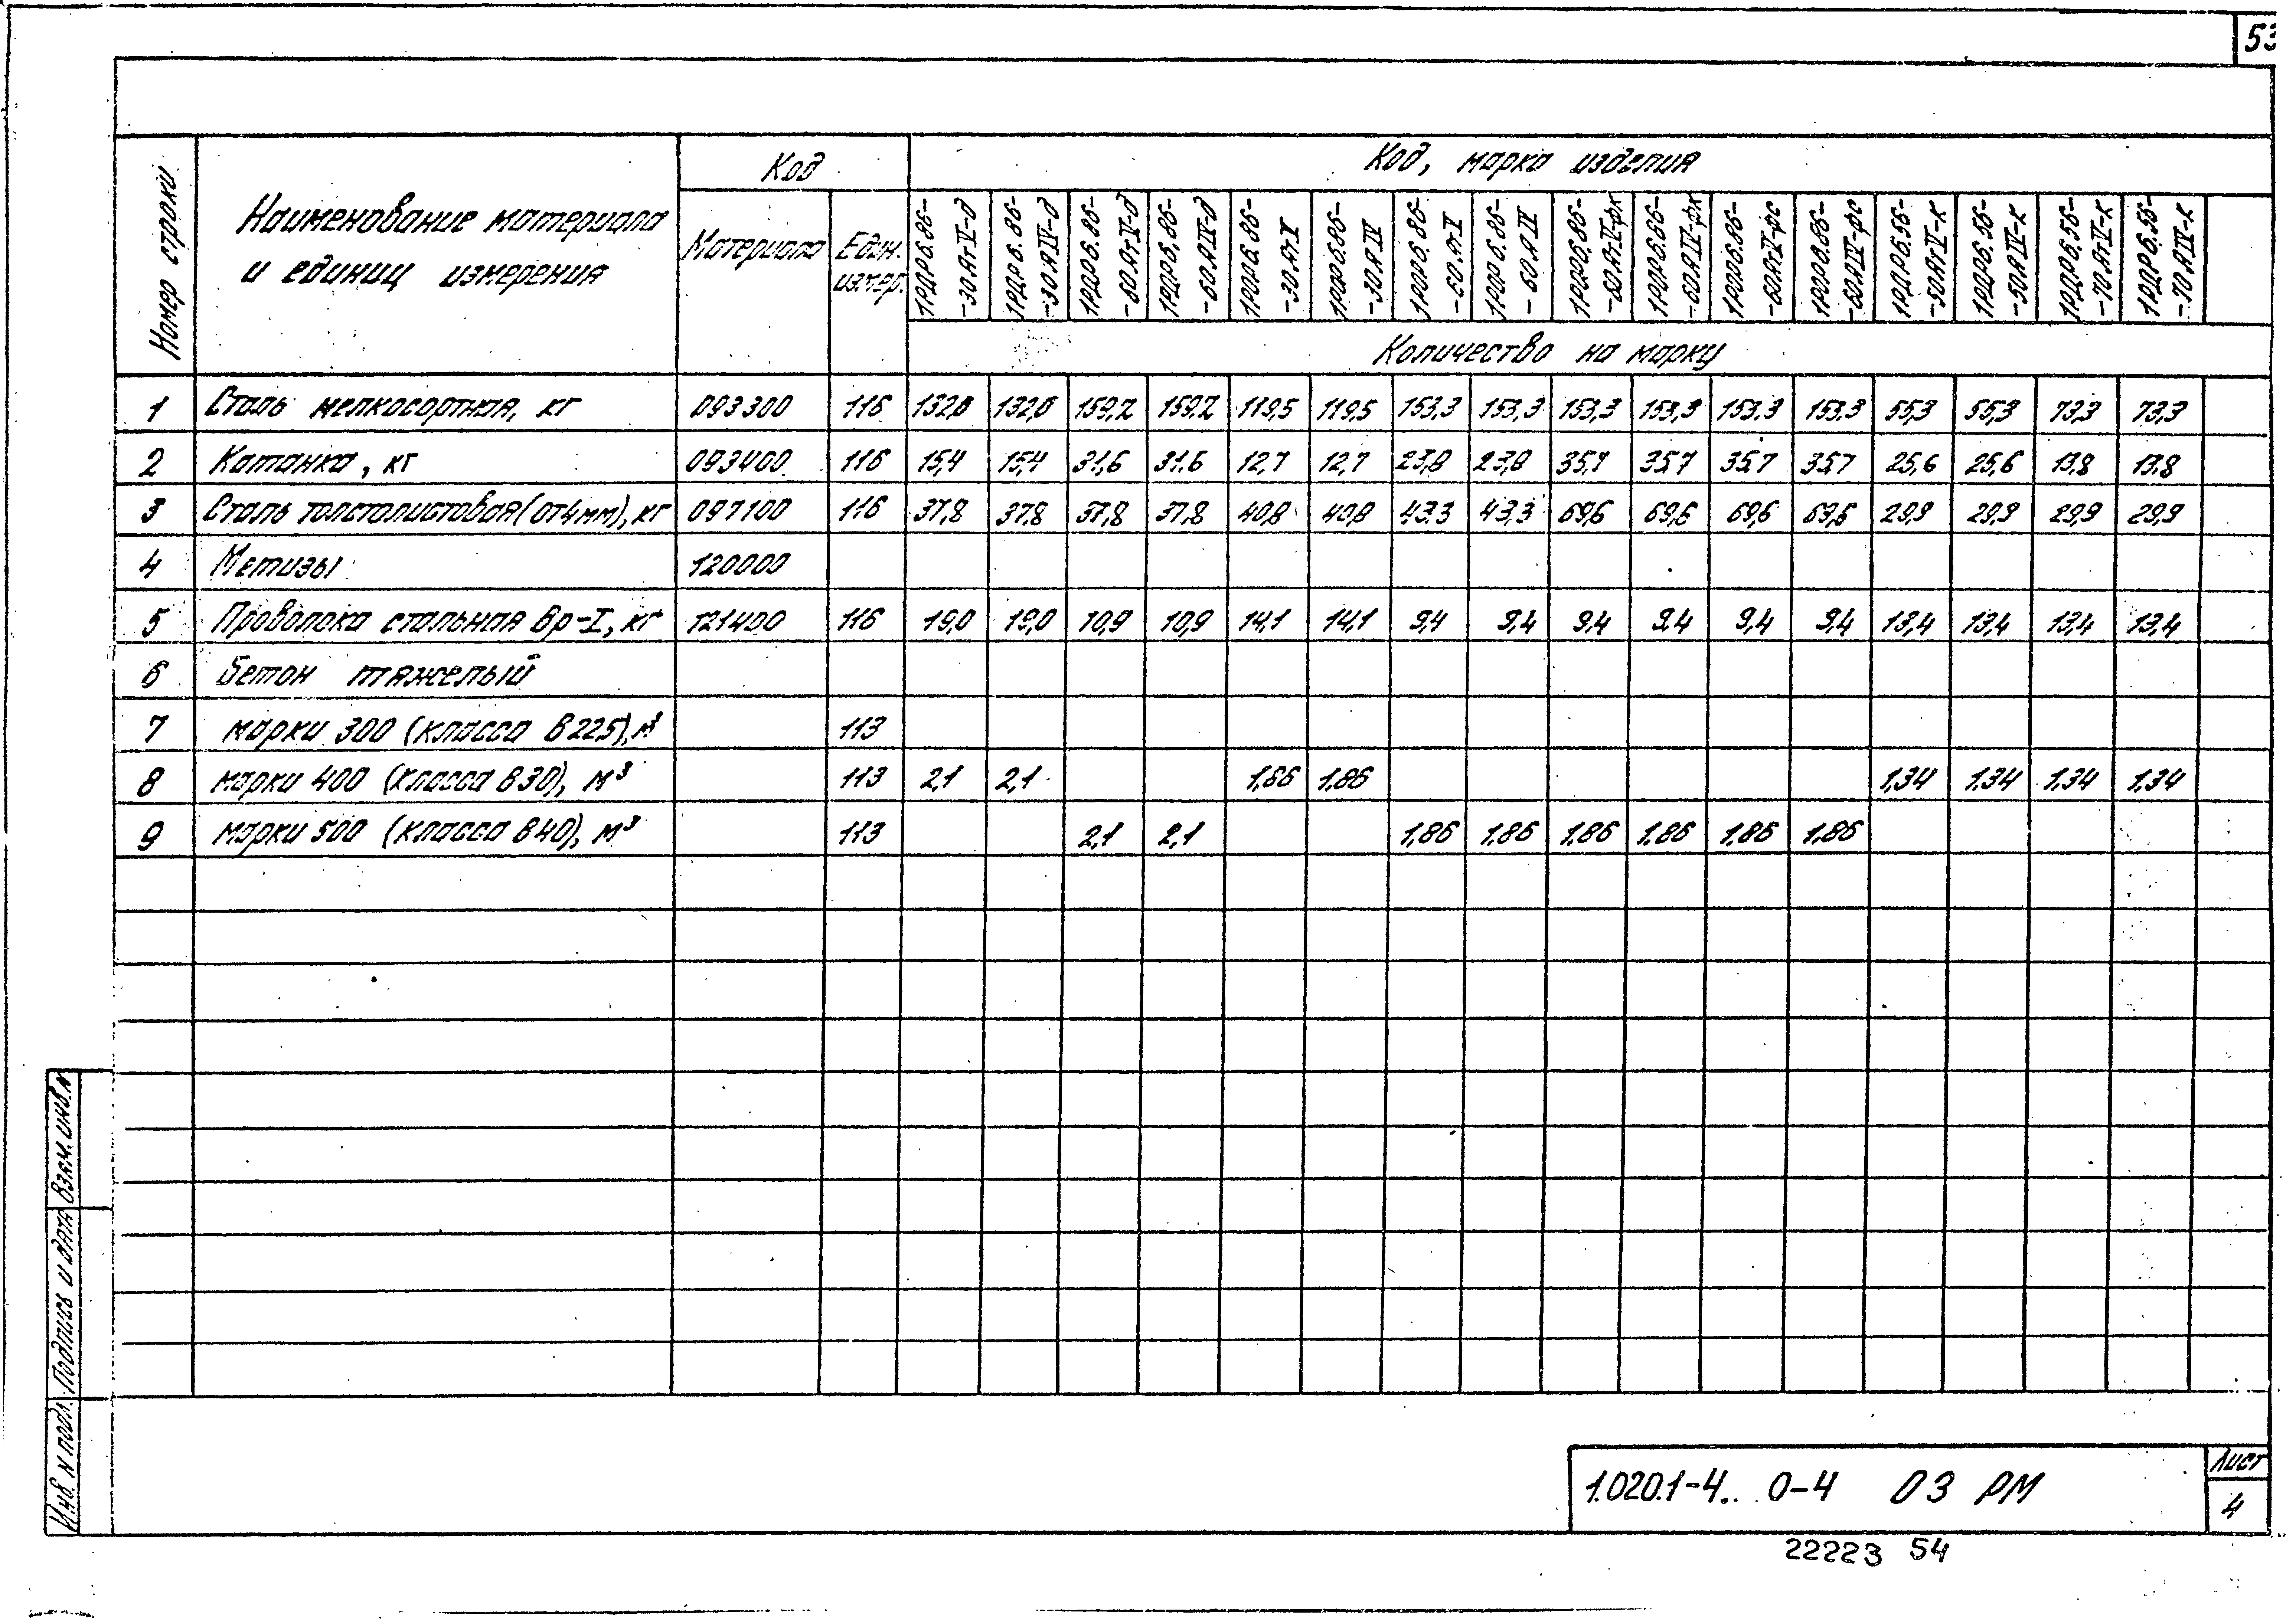 53
Номер строки
Наименование материала
и единиц измерения
Код
Материала
Един.
измер.
Код, марка изделия
1РДР6.86-
-30АтV-д
1РДР6.86-
-30АIV-д
1РДР6.86-
-60АтV-д
1РДР6.86-
-60АIV-д
1РОР6.86-
-30АтV
1РОР6.86-
-30АIV
1РОР6.86-
-60АтV
1РОР6.86-
-60АIV
1РОР6.86-
-60АтV-фк
1РОР6.86-
-60АIV-фк
1РОР6.86-
-60АтV-фс
1РОР6.86-
-60АIV-фс
1РДР6.56-
-50АтV-к
1РДР6.56-
-50АIV-к
1РДР6.56-
-70АтV-к
1РДР6.56-
-70АIV-к
Количество на марку
1 Сталь мелкосортная, кг 093300 116 132,8 132,8 159,2 159,2 119,5 119,5 153,3 153,3 153,3 153,3 153,3 153,3 55,3 55,3 73,3 73,3
2 Катанка, кг 093400 116 15,4 15,4 31,6 31,6 12,7 12,7 23,8 23,8 35,7 35,7 35,7 35,7 25,6 25,6 13,8 13,8
3 Сталь толстолистовая(от4мм), кг 097100 116 37,8 37,8 37,8 37,8 40,8 40,8 43,3 43,3 69,6 69,6 69,6 69,6 29,9 29,9 29,9 29,9
4 Метизы 120000
5 Проволока стальная Вр-I, кг 121400 116 19,0 19,0 10,9 10,9 14,1 14,1 9,4 9,4 9,4 9,4 9,4 9,4 13,4 13,4 13,4 13,4
6 Бетон тяжелый
7 марки 300 (класса В22,5), м³ 113
8 марки 400 (класса В30), м³ 113 2,1 2,1 1,86 1,86 1,34 1,34 1,34 1,34
9 марки 500 (класса В40), м³ 113 2,1 2,1 1,86 1,86 1,86 1,86 1,86 1,86
Взам. инв. N
Подпись и дата
Инв. N подл.
1.020.1-4. 0-4 03 РМ
Лист
4
22223 54